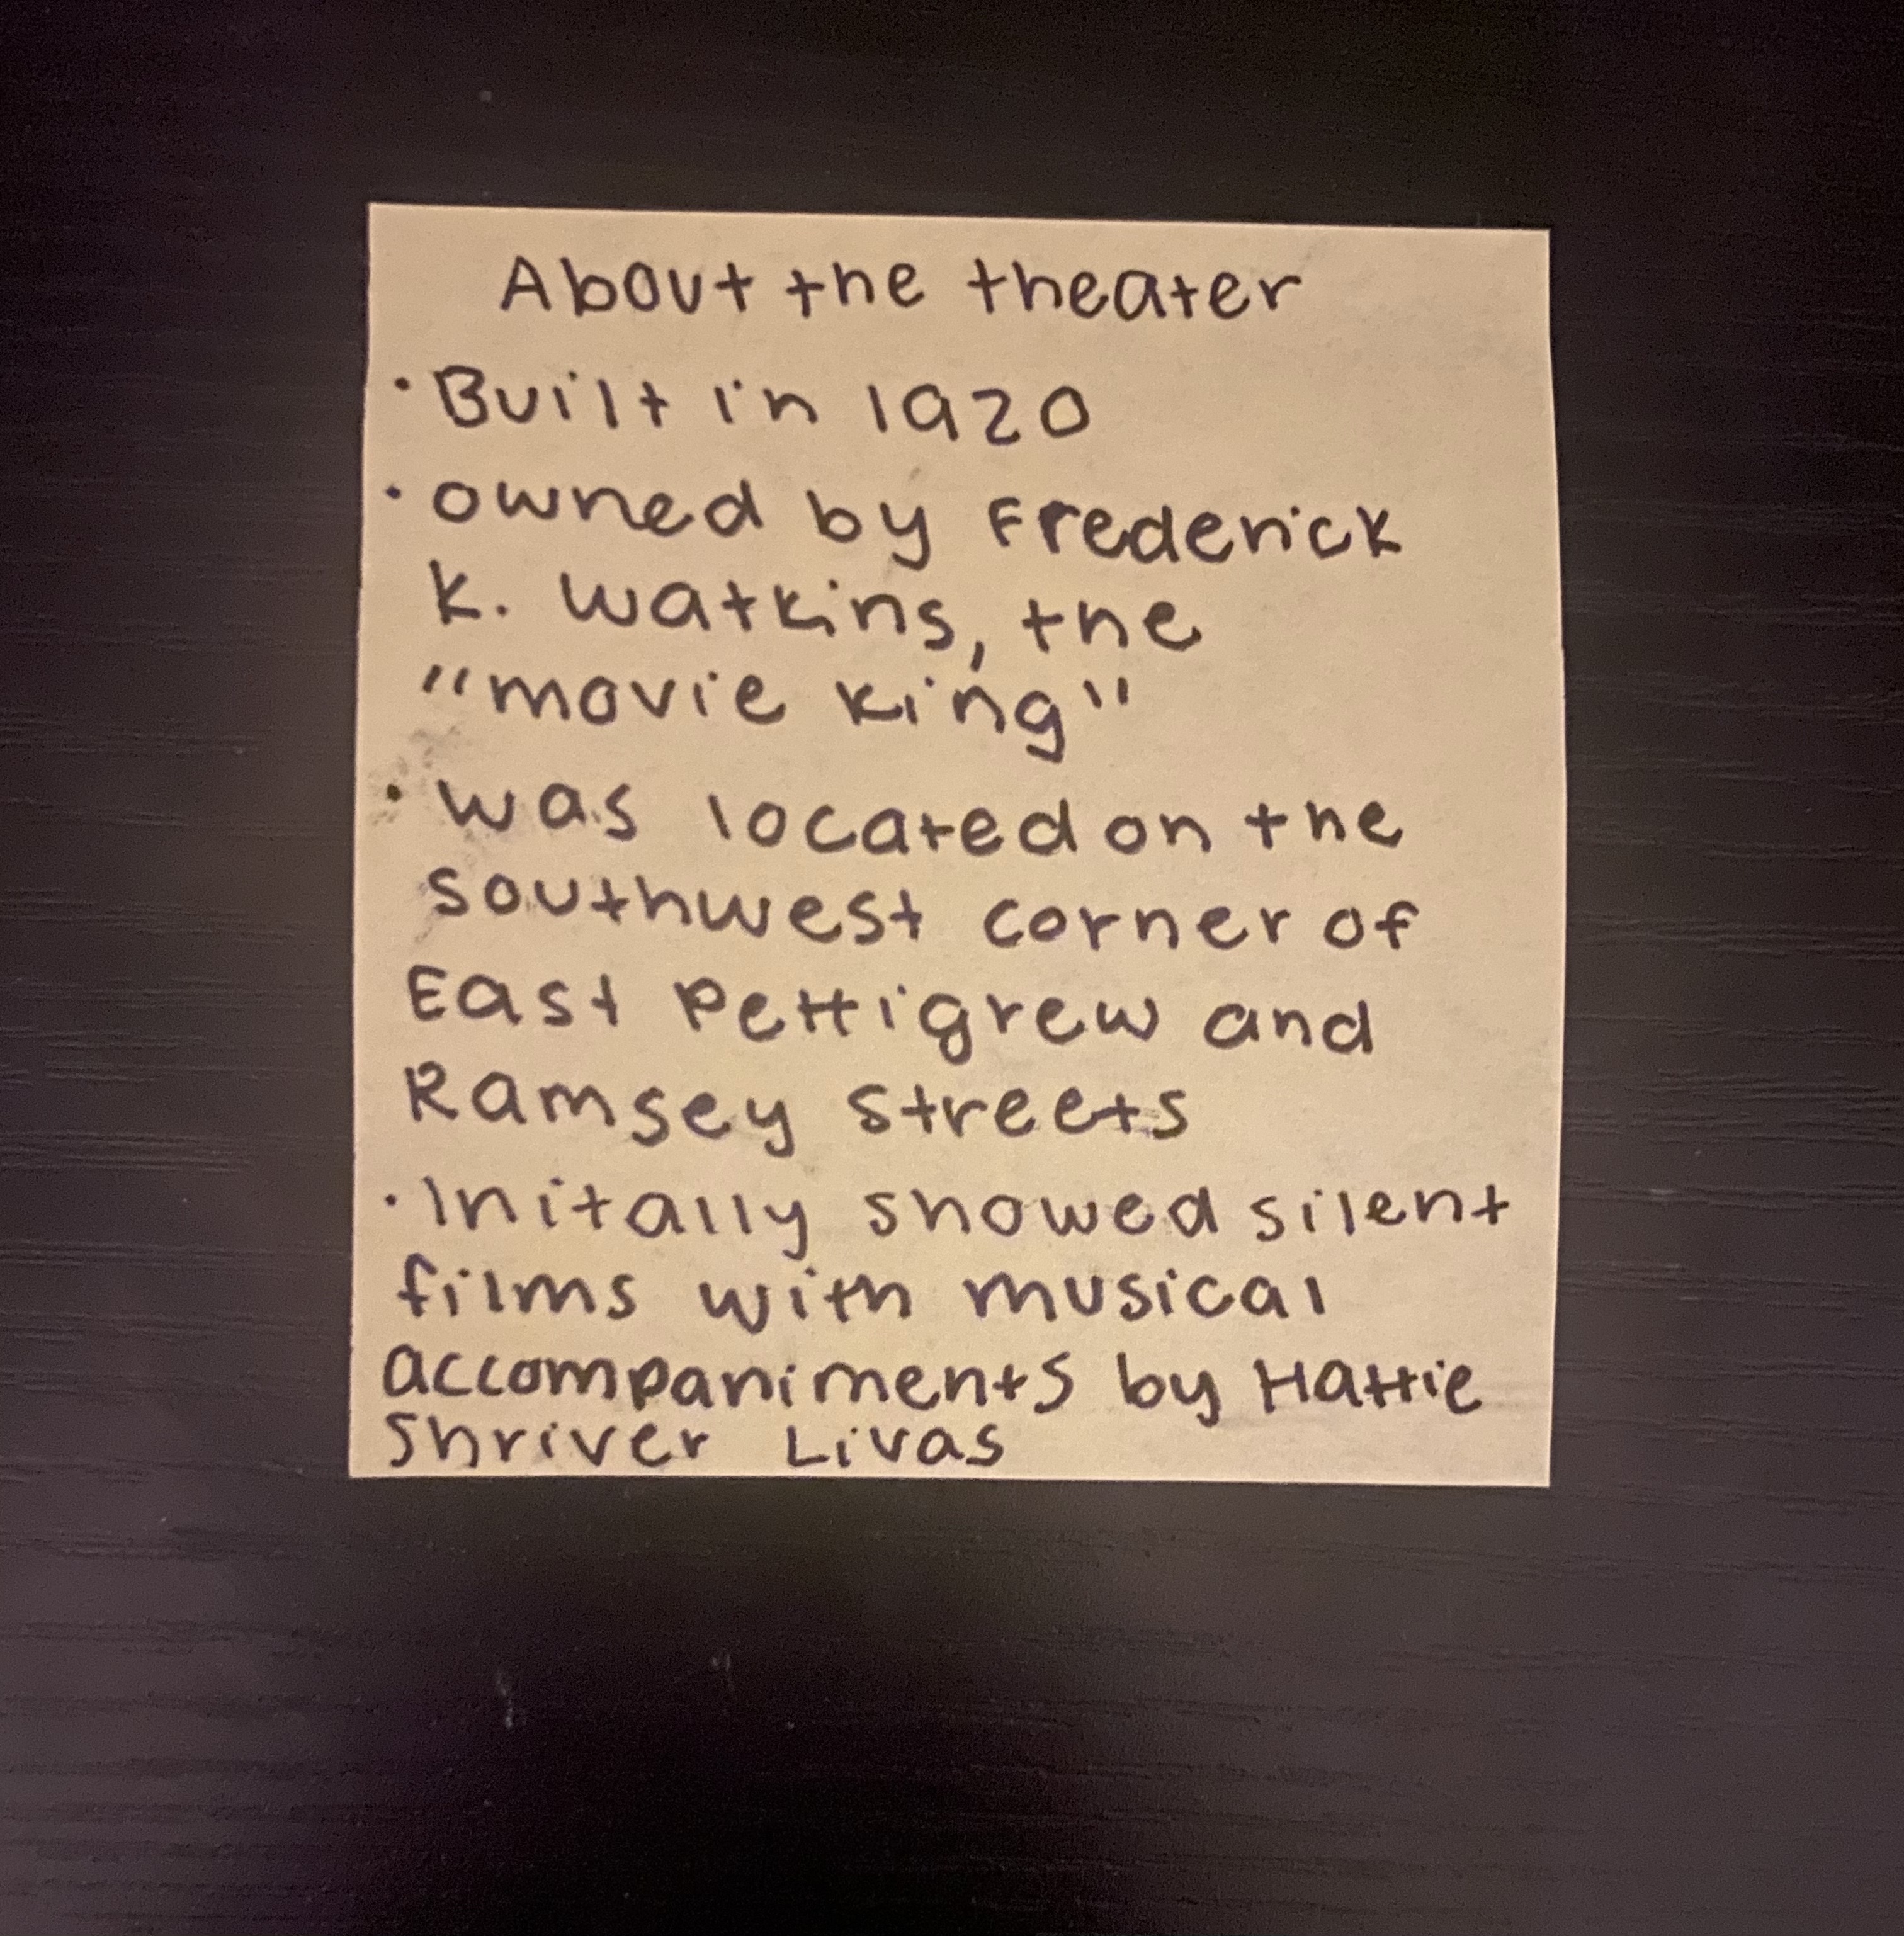 About the theater
• Built in 1920
• owned by Frederick
K. Watkins, the
"movie king"
• was located on the
southwest corner of
East Pettigrew and
Ramsey Streets
• Initally showed silent
films with musical
accompaniments by Hattie
Shriver Livas